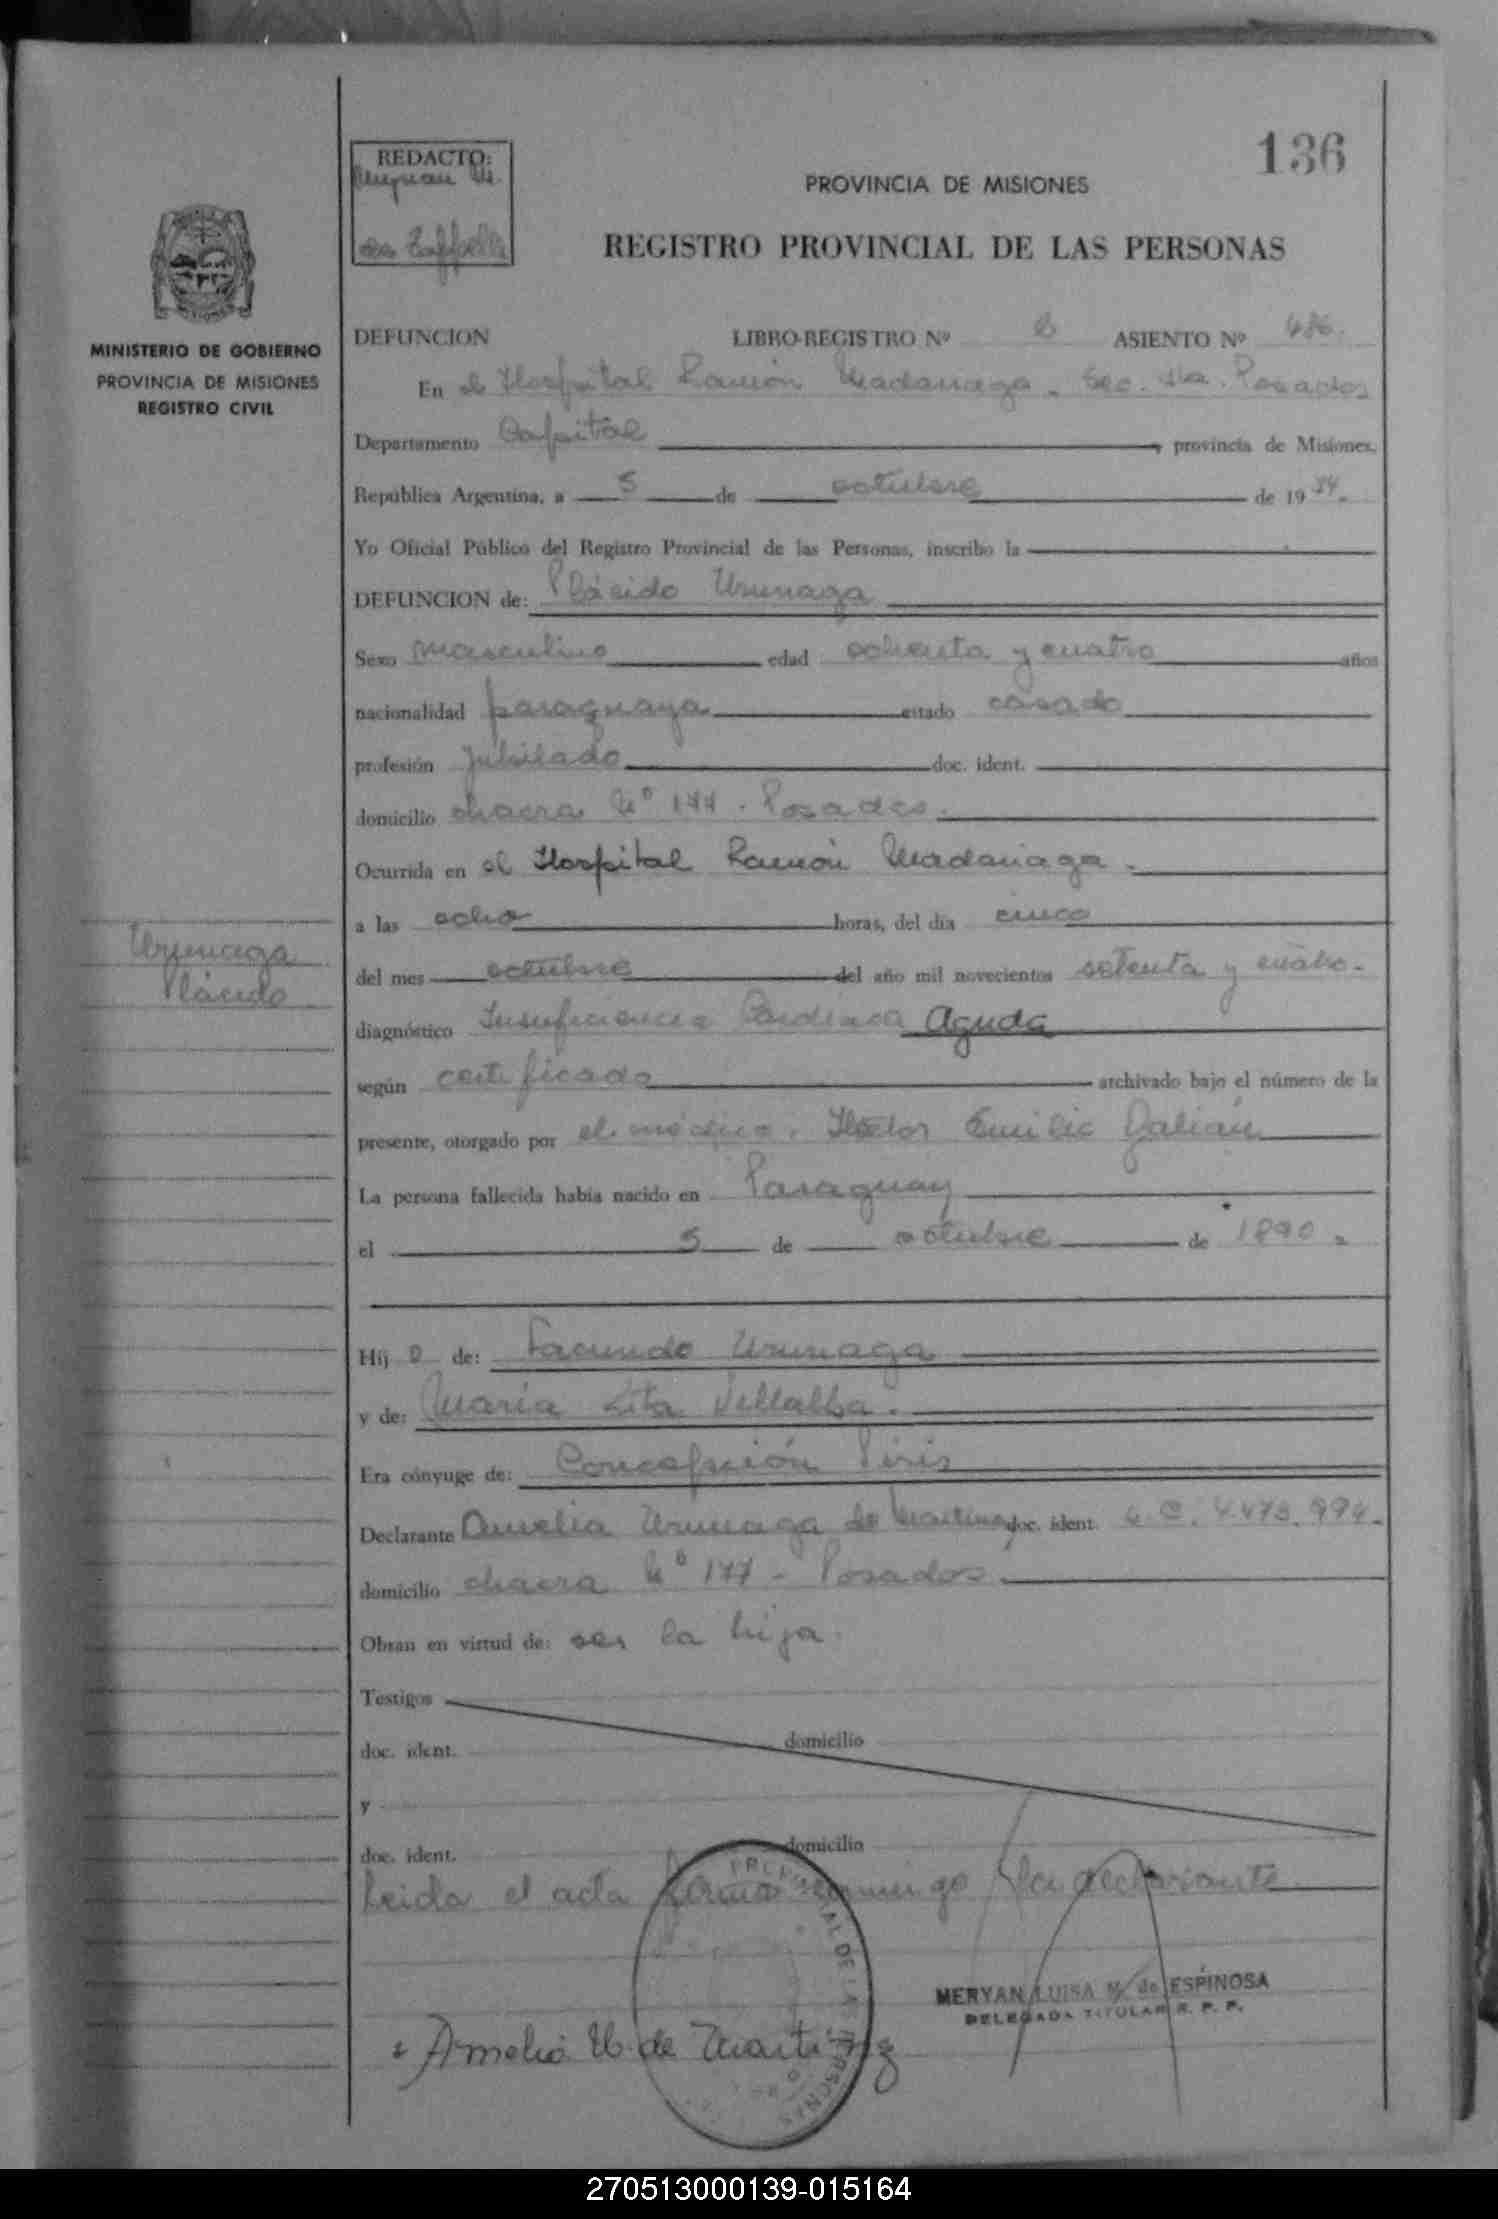 136
REDACTO:
PROVINCIA DE MISIONES
REGISTRO PROVINCIAL DE LAS PERSONAS
MINISTERIO DE GOBIERNO
PROVINCIA DE MISIONES
REGISTRO CIVIL
DEFUNCION LIBRO-REGISTRO Nº ASIENTO Nº 486.
En el Hospital Ramón Madariaga. Sec. Posadas
Departamento Capital, provincia de Misiones,
República Argentina, a 5 de octubre de 1974.
Yo Oficial Público del Registro Provincial de las Personas, inscribo la
DEFUNCION de: Plácido Urunaga
Sexo masculino edad ochenta y cuatro años
nacionalidad paraguaya estado casado
profesión jubilado doc. ident.
domicilio chacra Nº 177. Posadas.
Ocurrida en el Hospital Ramón Madariaga.
a las ocho horas, del día cinco
del mes octubre del año mil novecientos setenta y cuatro.
Urunaga
Plácido
diagnóstico Insuficiencia Cardiaca Aguda
según certificado archivado bajo el número de la
presente, otorgado por el médico. Héctor Emilio Galián
La persona fallecida había nacido en Paraguay
el 5 de octubre de 1890.
Hij o de: Facundo Urunaga
y de: María Rita Villalba.
Era cónyuge de: Concepción Piris
Declarante Amelia Urunaga de Martinez doc. ident. L.C. 4.473.994.
domicilio chacra Nº 177 - Posadas.
Obran en virtud de: ser la hija.
Testigos
doc. ident. domicilio
y
doc. ident. domicilio
Leida el acta firma conmigo la declarante
MERYAN LUISA M. de ESPINOSA
DELEGADA TITULAR R. P. P.
Amelia U. de Martinez
270513000139-015164